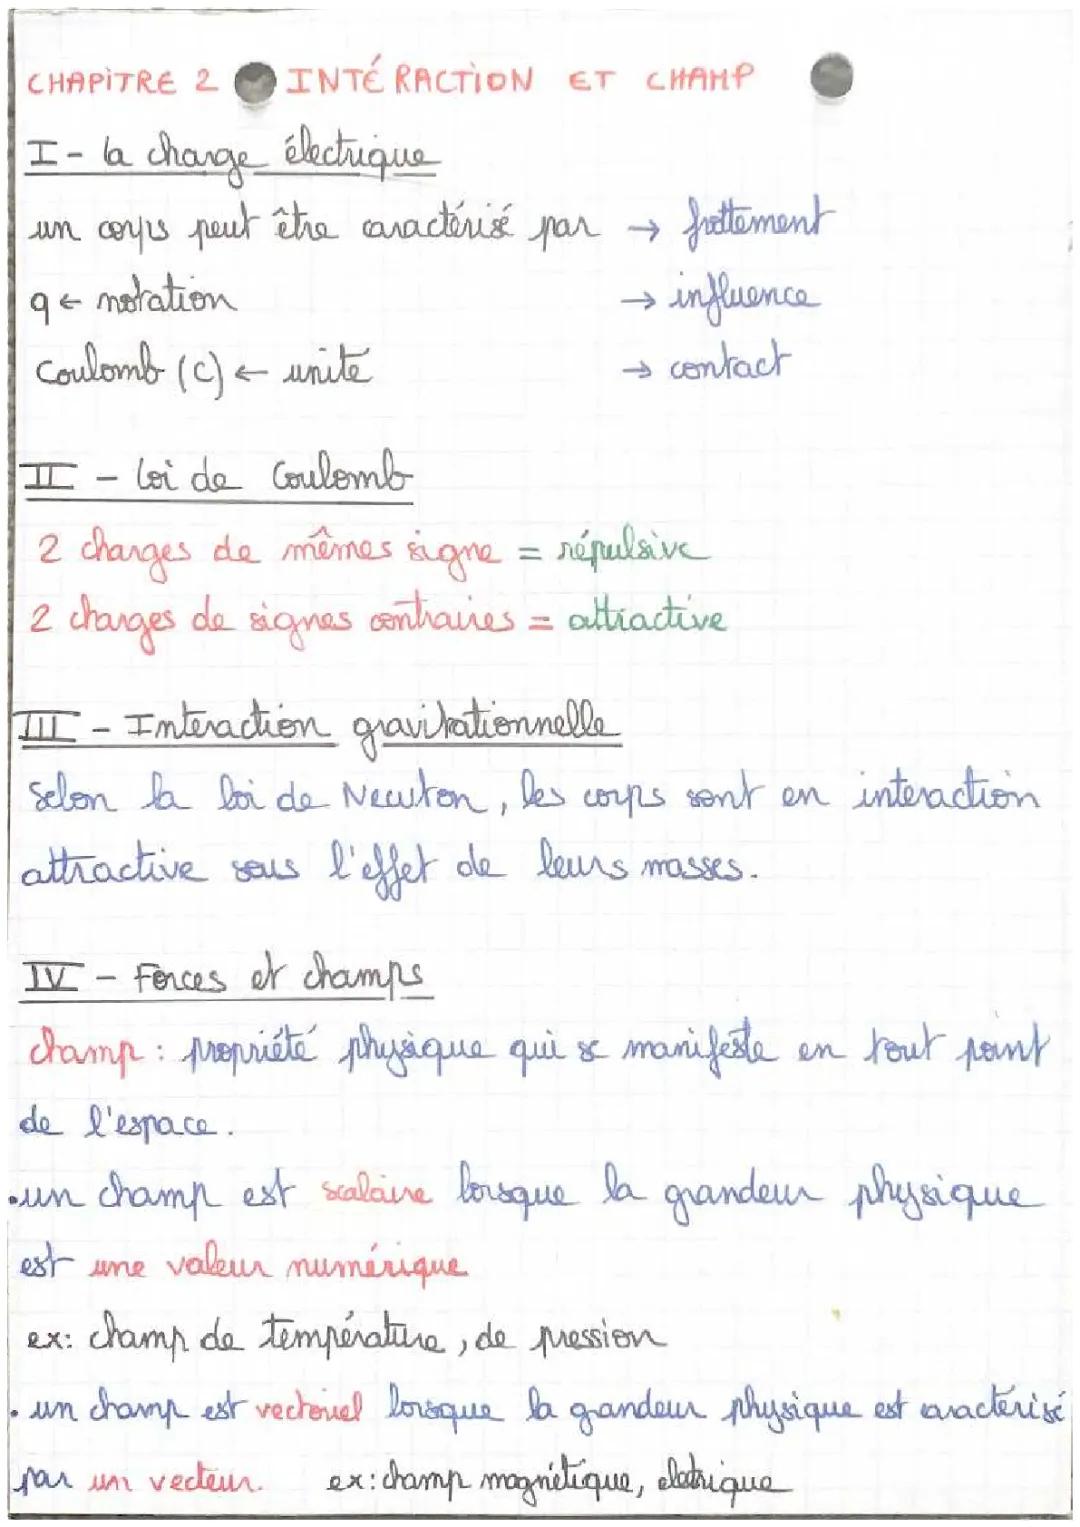 CHAPITRE 2 INTÉRACTION ET CHAMP
I - la charge électrique
un corps peut être caractérisé par → frottement
q ← notation → influence
Coulomb (C) ← unité → contact
II - Loi de Coulomb
2 charges de mêmes signe = répulsive
2 charges de signes contraires = attractive
III - Interaction gravitationnelle
Selon la loi de Newton, les corps sont en interaction
attractive sous l'effet de leurs masses.
IV - Forces et champs
champ : propriété physique qui se manifeste en tout point
de l'espace.
• un champ est scalaire lorsque la grandeur physique
est une valeur numérique
ex: champ de température, de pression
• un champ est vectoriel lorsque la grandeur physique est caractérisé
par un vecteur. ex: champ magnétique, eletrique